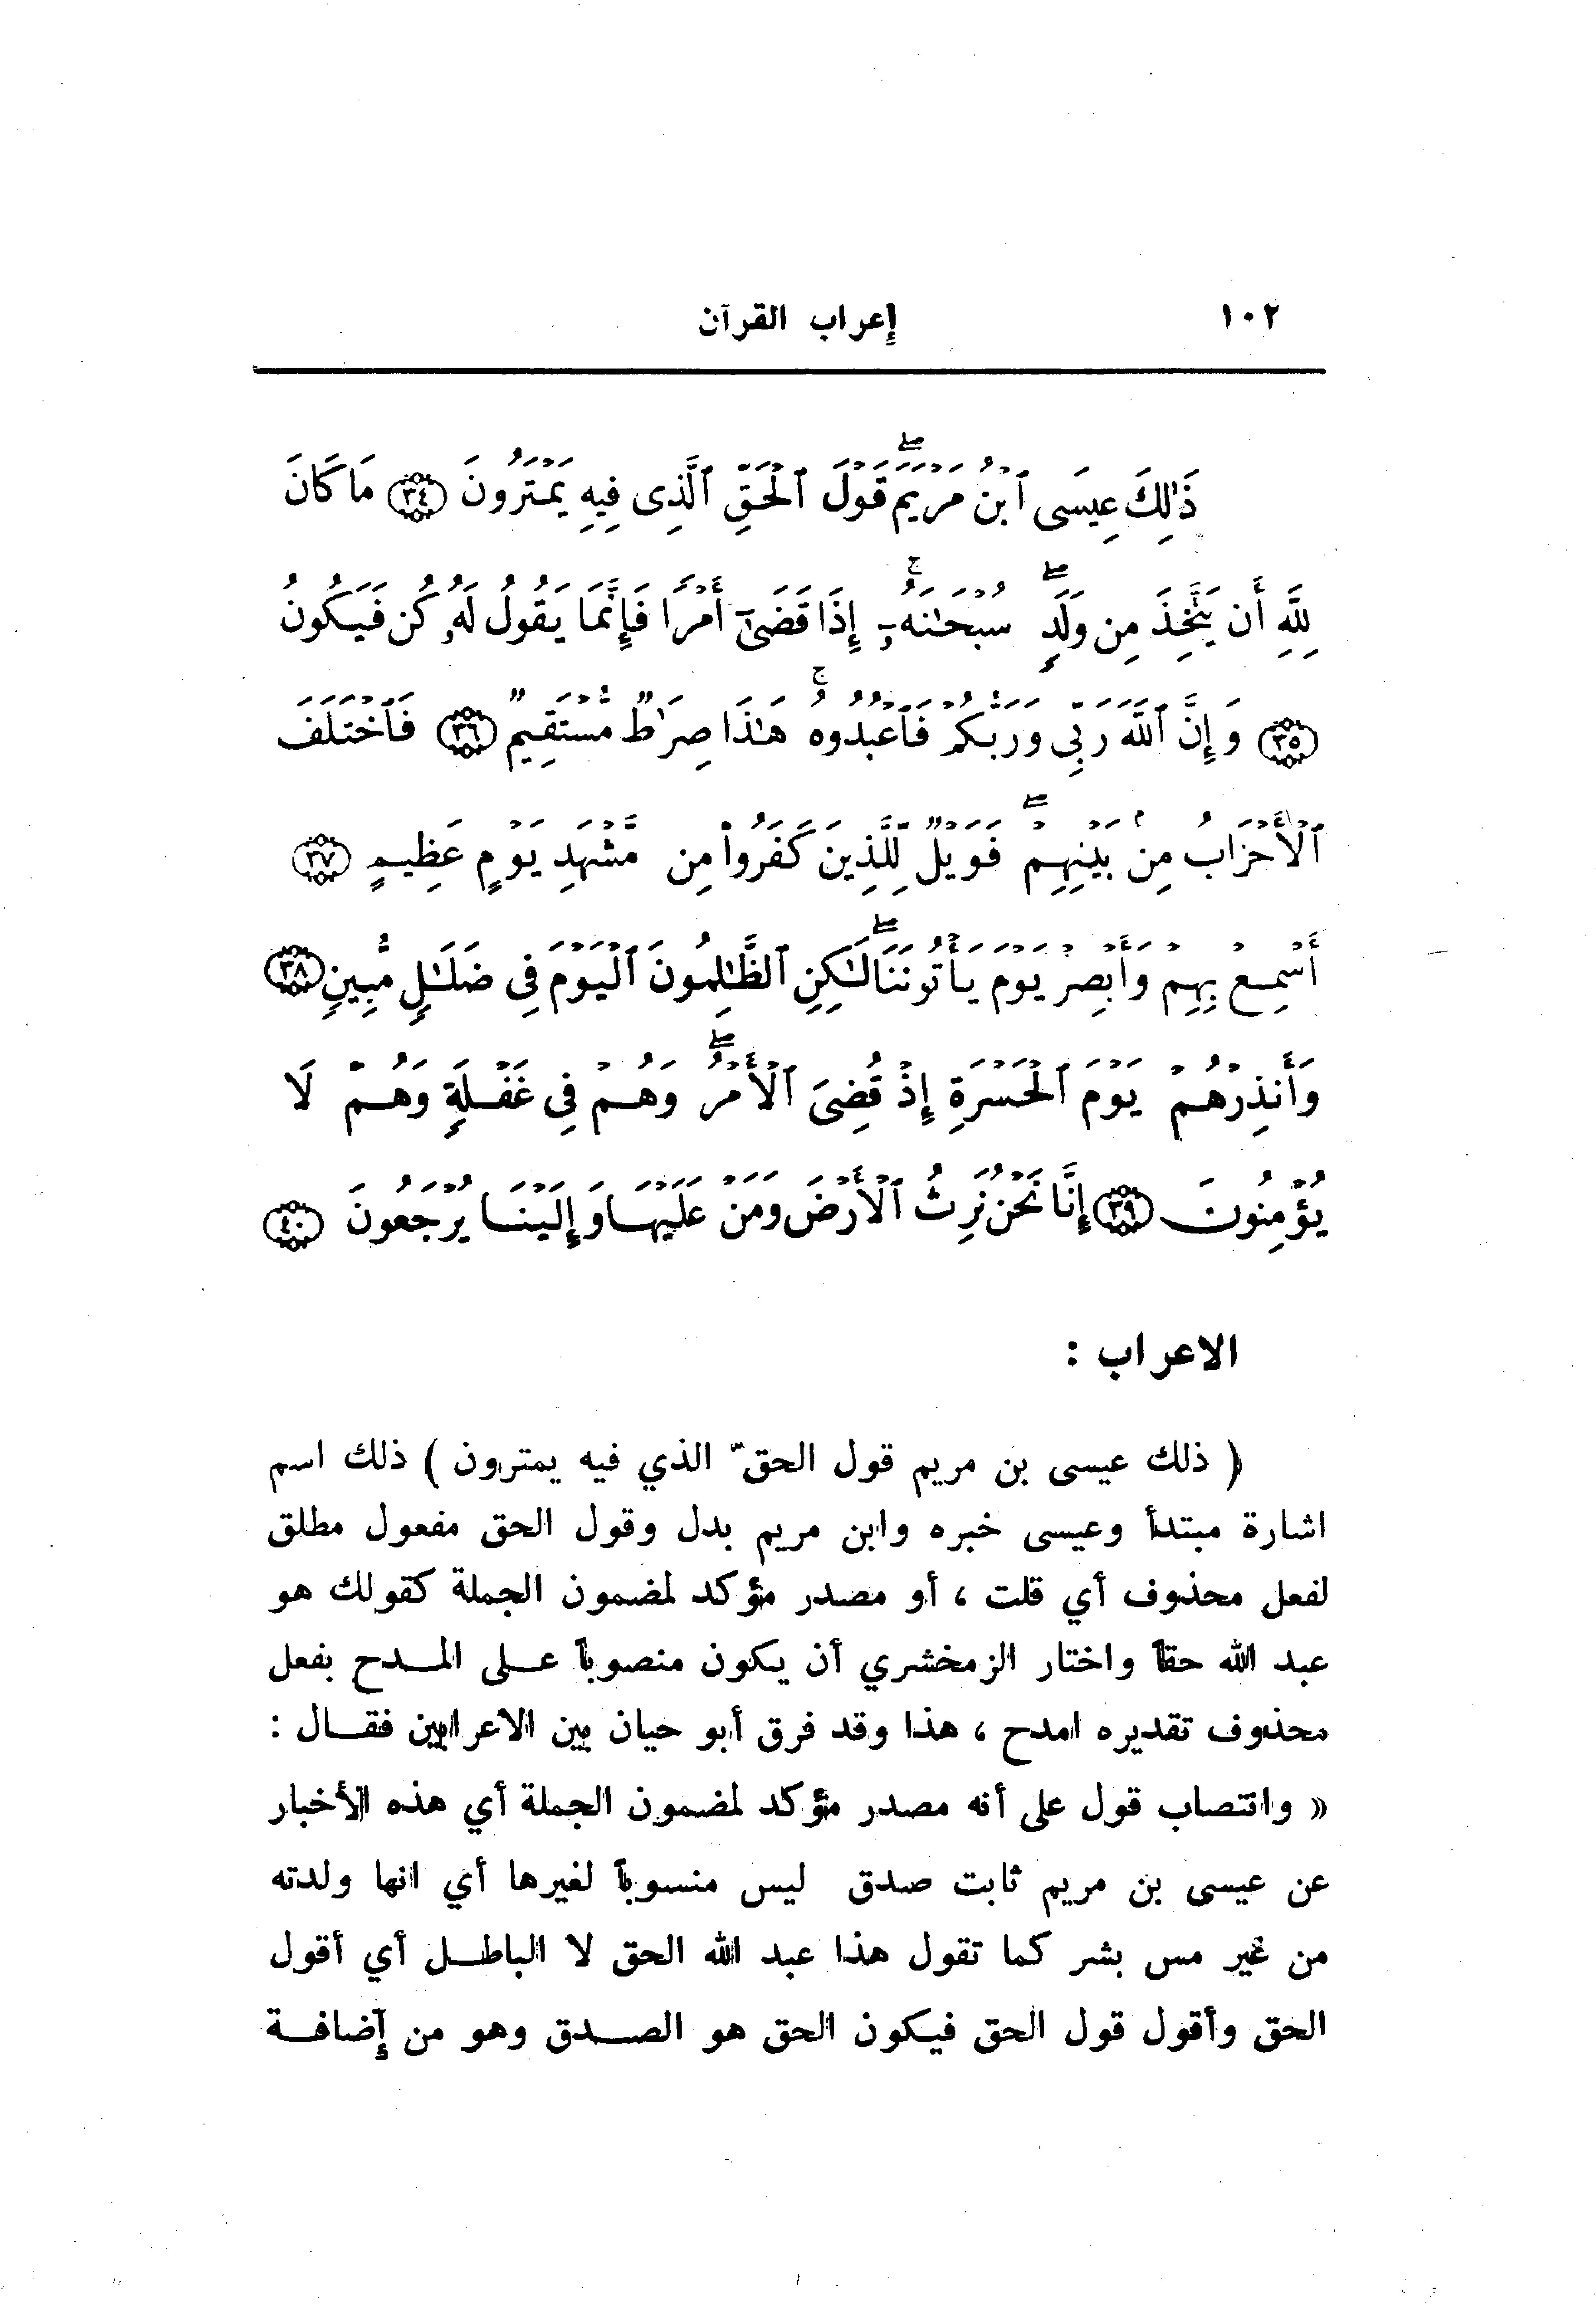 ١٠٢ إعراب القرآن
ذَٰلِكَ عِيسَى ٱبْنُ مَرْيَمَ ۖ قَوْلَ ٱلْحَقِّ ٱلَّذِى فِيهِ يَمْتَرُونَ ﴿٣٤﴾ مَا كَانَ
لِلَّهِ أَن يَتَّخِذَ مِن وَلَدٍ ۖ سُبْحَـٰنَهُۥٓ ۚ إِذَا قَضَىٰٓ أَمْرًا فَإِنَّمَا يَقُولُ لَهُۥ كُن فَيَكُونُ
﴿٣٥﴾ وَإِنَّ ٱللَّهَ رَبِّى وَرَبُّكُمْ فَٱعْبُدُوهُ ۚ هَـٰذَا صِرَٰطٌ مُّسْتَقِيمٌ ﴿٣٦﴾ فَٱخْتَلَفَ
ٱلْأَحْزَابُ مِنۢ بَيْنِهِمْ ۖ فَوَيْلٌ لِّلَّذِينَ كَفَرُوا۟ مِن مَّشْهَدِ يَوْمٍ عَظِيمٍ ﴿٣٧﴾
أَسْمِعْ بِهِمْ وَأَبْصِرْ يَوْمَ يَأْتُونَنَا ۖ لَـٰكِنِ ٱلظَّـٰلِمُونَ ٱلْيَوْمَ فِى ضَلَـٰلٍ مُّبِينٍ ﴿٣٨﴾
وَأَنذِرْهُمْ يَوْمَ ٱلْحَسْرَةِ إِذْ قُضِىَ ٱلْأَمْرُ ۖ وَهُمْ فِى غَفْلَةٍ وَهُمْ لَا
يُؤْمِنُونَ ﴿٣٩﴾ إِنَّا نَحْنُ نَرِثُ ٱلْأَرْضَ وَمَنْ عَلَيْهَا وَإِلَيْنَا يُرْجَعُونَ ﴿٤٠﴾
الاعراب :
( ذلك عيسى بن مريم قول الحقّ الذي فيه يمترون ) ذلك اسم
اشارة مبتدأ وعيسى خبره وابن مريم بدل وقول الحق مفعول مطلق
لفعل محذوف أي قلت ، أو مصدر مؤكد لمضمون الجملة كقولك هو
عبد الله حقاً واختار الزمخشري أن يكون منصوباً على المدح بفعل
محذوف تقديره امدح ، هذا وقد فرق أبو حيان بين الاعرابين فقال :
« وانتصاب قول على أنه مصدر مؤكد لمضمون الجملة أي هذه الأخبار
عن عيسى بن مريم ثابت صدق ليس منسوباً لغيرها أي انها ولدته
من غير مس بشر كما تقول هذا عبد الله الحق لا الباطل أي أقول
الحق وأقول قول الحق فيكون الحق هو الصدق وهو من إضافة